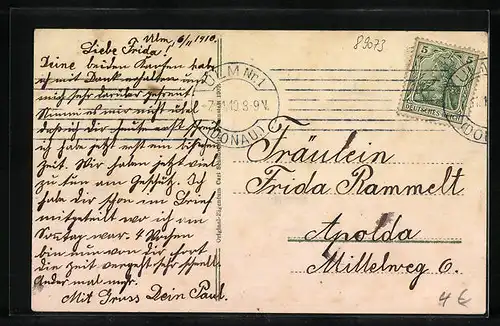 Ulm, 6/11 1910.
Liebe Frida!
Deine beiden Karten habe
ich mit Dank erhalten und
mich sehr darüber gefreut.
Nimm es mir nicht übel
daß ich Dir heute erst schreibe
ich habe jetzt erst ein bischen
Zeit. Wir haben jetzt viel
zu tun am Geschütz. Ich
habe Dir schon im Brief
mitgeteilt wo ich am
Sonntag war. 4 Wochen
bin nun von Dir fort
die Zeit vergeht sehr schnell.
Ander mal mehr.
Mit Gruss Dein Paul.
89073
5 5
DEUTSCHES REICH
ULM Nr. 1
-7.11.10.8-9V.
(DONAU)
Original-Eigentum Carl
Fräulein
Frida Rammelt
Apolda
Mittelweg 6.
4 €